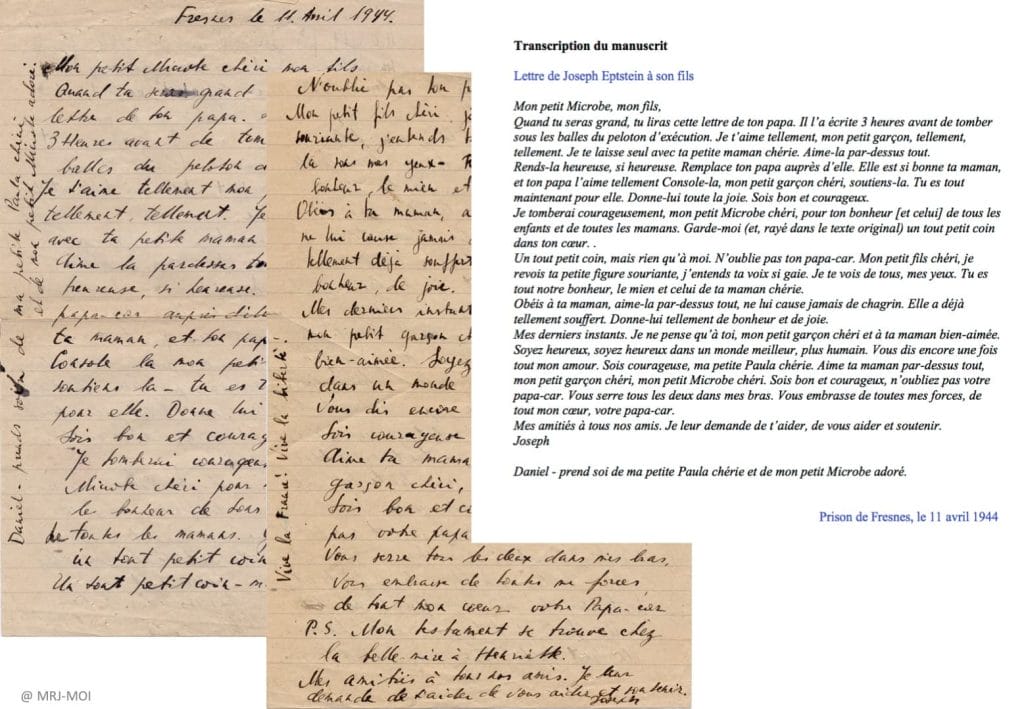 Fresnes le 11. Avril 1944.
Mon petit Microbe chéri mon fils
Quand tu seras grand
lettre de ton papa.
3 Heures avant de tom
balles du peloton d
Je t'aime tellement mon
tellement, tellement. Je
avec ta petite maman
Aime la pardessus to
heureuse, si heureuse.
papa-car auprès d'elle
ta maman, et ton pap
Console la mon peti
soutiens la - tu es t
pour elle. Donne lui
Sois bon et courag
Je tomberai courageus
Microbe chéri pour
le bonheur de tous
de toutes les mamans.
un tout petit coin
Un tout petit coin - m
Daniel - prends soin de ma petite Paula chérie
et de mon petit Microbe adoré.
N'oublie pas ton p
Mon petit fils chéri. j
souriante, j'entends t
la sous mes yeux -
bonheur, le mien et
Obéis à ta maman, a
ne lui cause jamais
tellement déjà souffert
bonheur, de joie.
Mes derniers instant
mon petit garçon et
bien-aimée. Soyez
dans un monde
Vous dis encore
Sois courageuse
Aime ta mama
garçon chéri,
Sois bon et c
pas votre papa
Vous serre tous les deux dans mes bras,
Vous embrasse de toutes mes forces
de tout mon coeur votre Papa-car
P.S. Mon testament se trouve chez
la belle-mère à
Mes amitiés à tous nos amis. Je leur
demande de t'aider de vous aider et soutenir.
Joseph
Vive la France! Vive la liberté!
@ MRJ-MOI
Transcription du manuscrit
Lettre de Joseph Eptstein à son fils
Mon petit Microbe, mon fils,
Quand tu seras grand, tu liras cette lettre de ton papa. Il l'a écrite 3 heures avant de tomber
sous les balles du peloton d'exécution. Je t'aime tellement, mon petit garçon, tellement,
tellement. Je te laisse seul avec ta petite maman chérie. Aime-la par-dessus tout.
Rends-la heureuse, si heureuse. Remplace ton papa auprès d'elle. Elle est si bonne ta maman,
et ton papa l'aime tellement Console-la, mon petit garçon chéri, soutiens-la. Tu es tout
maintenant pour elle. Donne-lui toute la joie. Sois bon et courageux.
Je tomberai courageusement, mon petit Microbe chéri, pour ton bonheur [et celui] de tous les
enfants et de toutes les mamans. Garde-moi (et, rayé dans le texte original) un tout petit coin
dans ton cœur. .
Un tout petit coin, mais rien qu'à moi. N'oublie pas ton papa-car. Mon petit fils chéri, je
revois ta petite figure souriante, j'entends ta voix si gaie. Je te vois de tous, mes yeux. Tu es
tout notre bonheur, le mien et celui de ta maman chérie.
Obéis à ta maman, aime-la par-dessus tout, ne lui cause jamais de chagrin. Elle a déjà
tellement souffert. Donne-lui tellement de bonheur et de joie.
Mes derniers instants. Je ne pense qu'à toi, mon petit garçon chéri et à ta maman bien-aimée.
Soyez heureux, soyez heureux dans un monde meilleur, plus humain. Vous dis encore une fois
tout mon amour. Sois courageuse, ma petite Paula chérie. Aime ta maman par-dessus tout,
mon petit garçon chéri, mon petit Microbe chéri. Sois bon et courageux, n'oubliez pas votre
papa-car. Vous serre tous les deux dans mes bras. Vous embrasse de toutes mes forces, de
tout mon cœur, votre papa-car.
Mes amitiés à tous nos amis. Je leur demande de t'aider, de vous aider et soutenir.
Joseph
Daniel - prend soi de ma petite Paula chérie et de mon petit Microbe adoré.
Prison de Fresnes, le 11 avril 1944